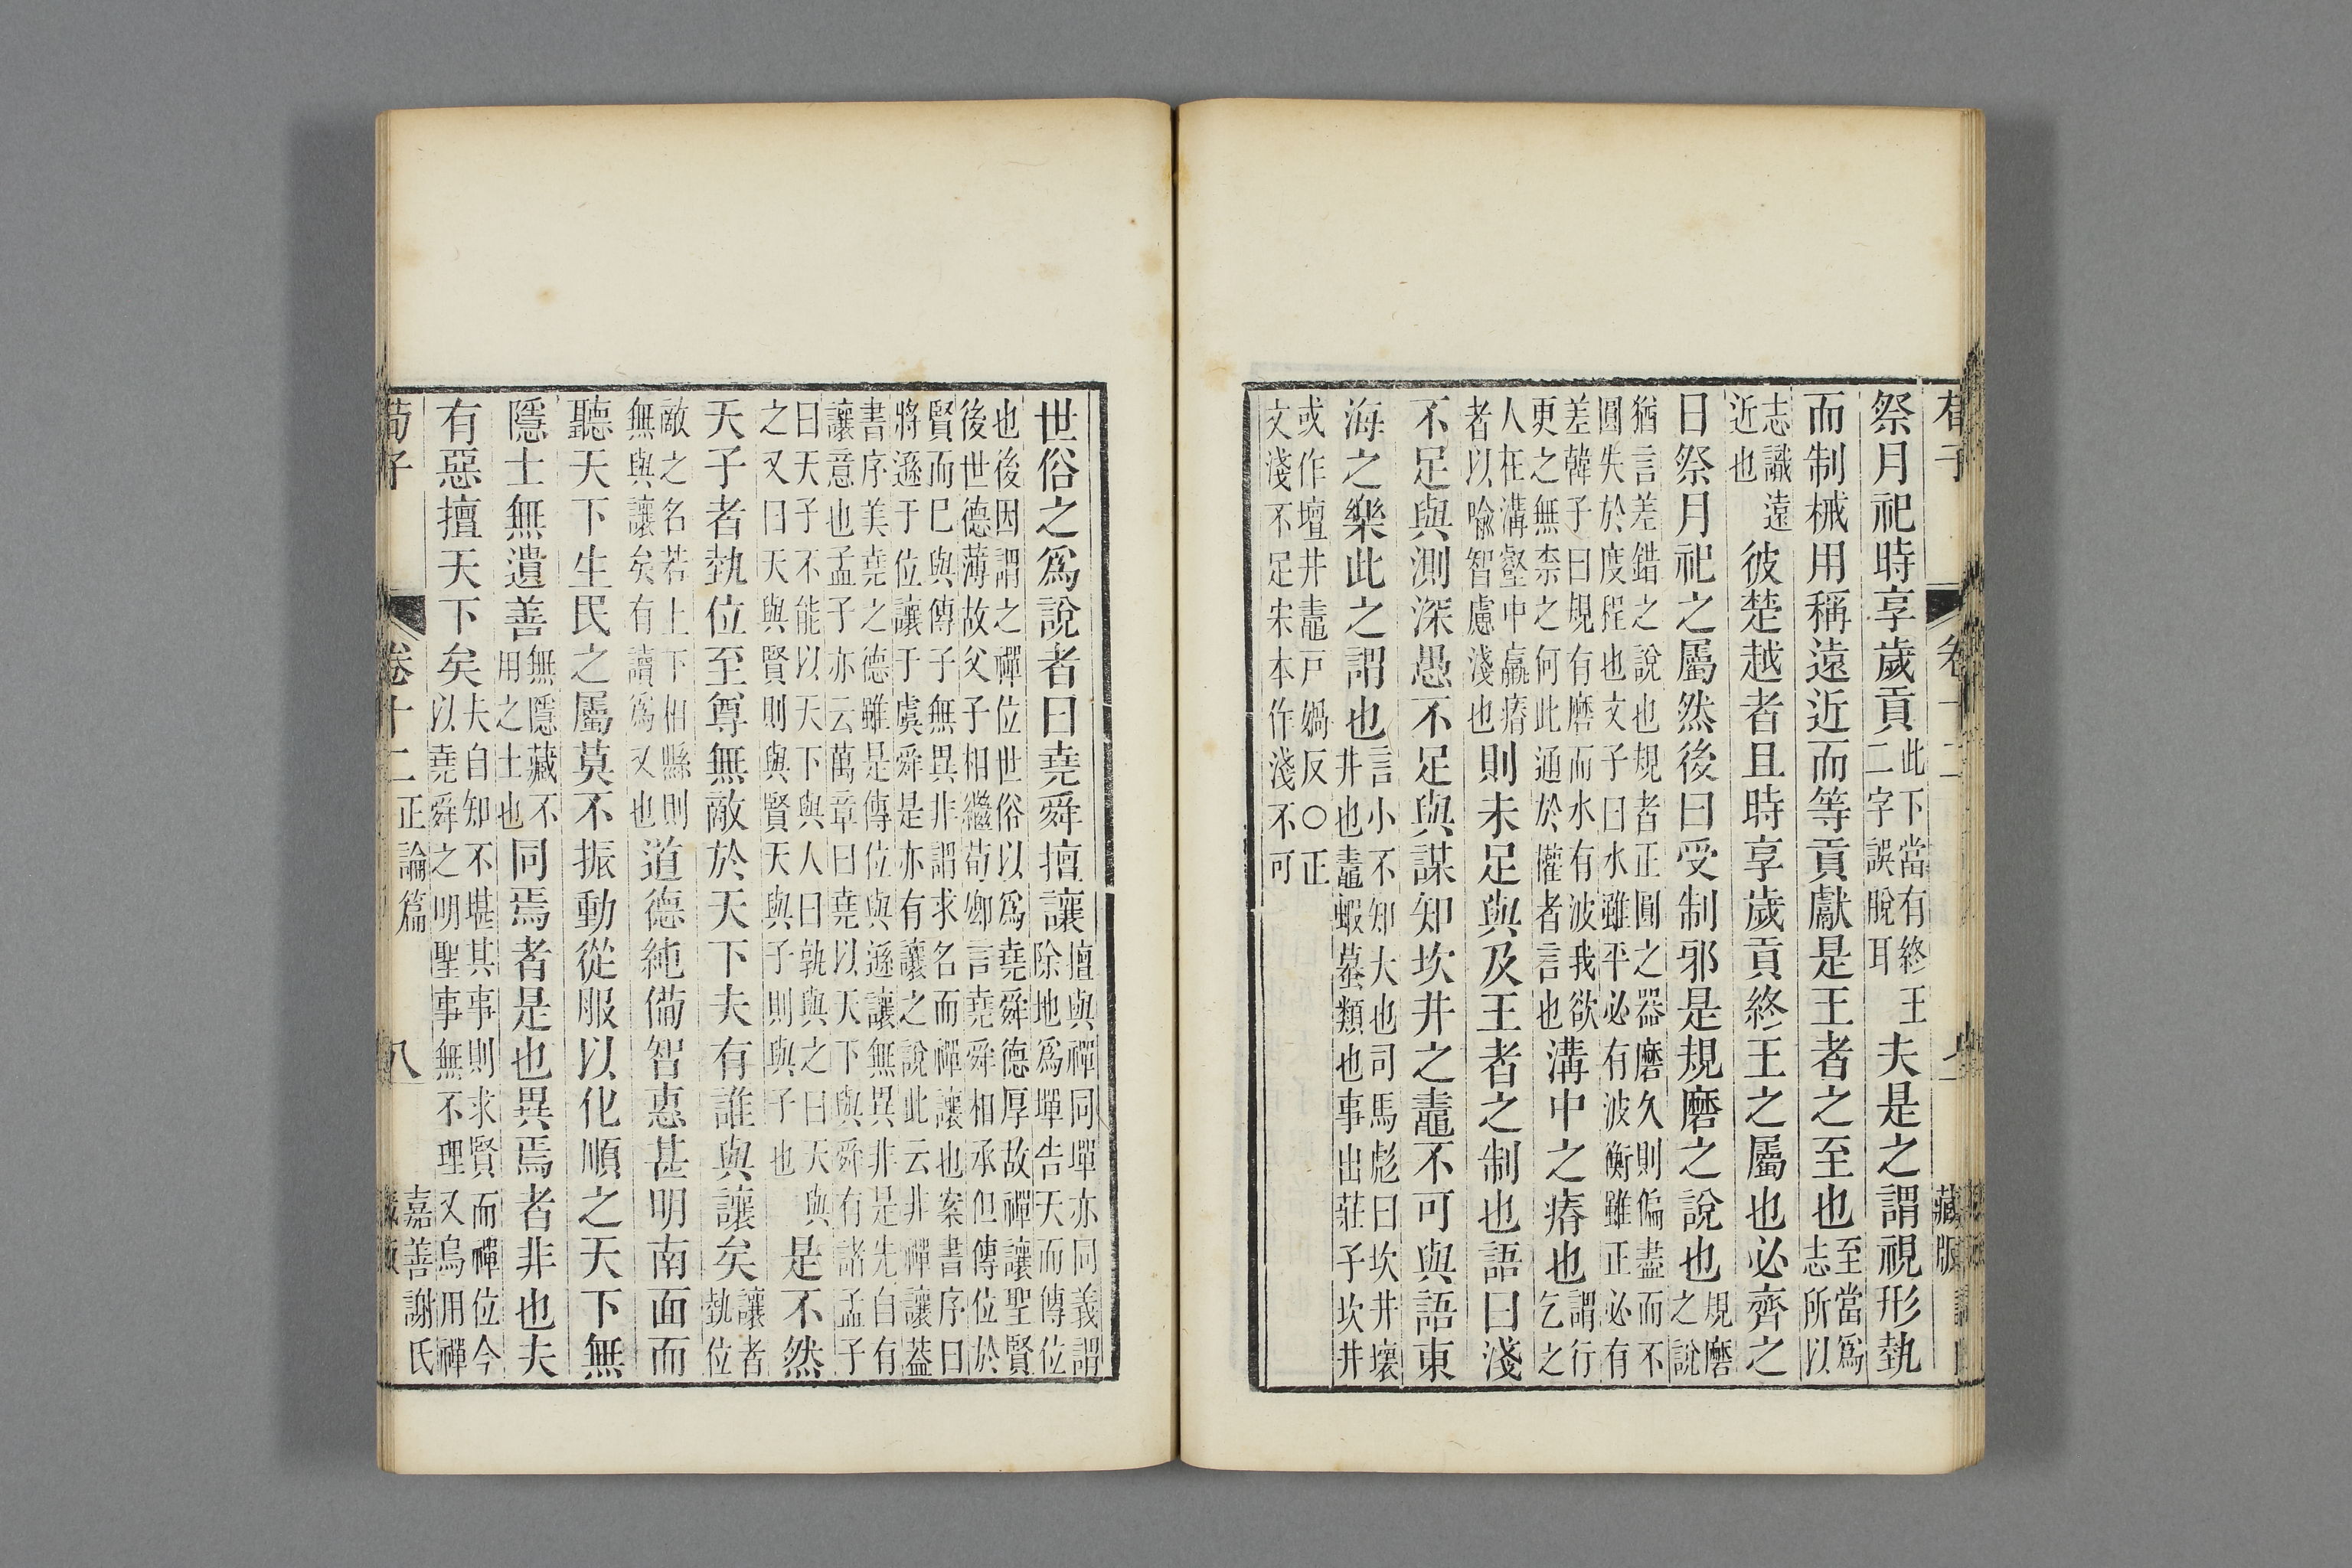 荀子 卷十二 藏版
祭月祀時享歲貢此下當有終王二字誤脫耳夫是之謂視形埶
而制械用稱遠近而等貢獻是王者之至也至當爲志所以
志識遠近也彼楚越者且時享歲貢終王之屬也必齊之
日祭月祀之屬然後曰受制邪是規磨之說也規磨之說
猶言差錯之說也規者正圓之器磨久則偏盡而不
圓失於度程也文子曰水雖平必有波衡雖正必有
差韓子曰規有磨而水有波我欲更之無柰之何此通於權者言也溝中之瘠也謂行乞之
人在溝壑中羸瘠者以喻智慮淺也則未足與及王者之制也語曰淺
不足與測深愚不足與謀知坎井之鼃不可與語東
海之樂此之謂也言小不知大也司馬彪曰坎井壞井也鼃蝦蟇類也事出莊子坎井
或作壇井鼃戸媧反○正
文淺不足宋本作淺不可
世俗之爲說者曰堯舜擅讓擅與禪同墠亦同義謂除地爲墠告天而傳位
也後因謂之禪位世俗以爲堯舜德厚故禪讓聖賢
後世德薄故父子相繼荀卿言堯舜相承但傳位於
賢而已與傳子無異非謂求名而禪讓也案書序曰
將遜于位讓于虞舜是亦有讓之說此云非禪讓葢
書序美堯之德雖是傳位與遜讓無異非是先自有
讓意也孟子亦云萬章曰堯以天下與舜有諸孟子
曰天子不能以天下與人曰孰與之曰天與之又曰天與賢則與賢天與子則與子也是不然
天子者埶位至尊無敵於天下夫有誰與讓矣讓者埶位
敵之名若上下相縣則無與讓矣有讀爲又也道德純備智惠甚明南面而
聽天下生民之屬莫不振動從服以化順之天下無
隱士無遺善無隱藏不用之士也同焉者是也異焉者非也夫
有惡擅天下矣夫自知不堪其事則求賢而禪位今以堯舜之明聖事無不理又烏用禪
荀子 卷十二 正論篇 八 嘉善謝氏藏版